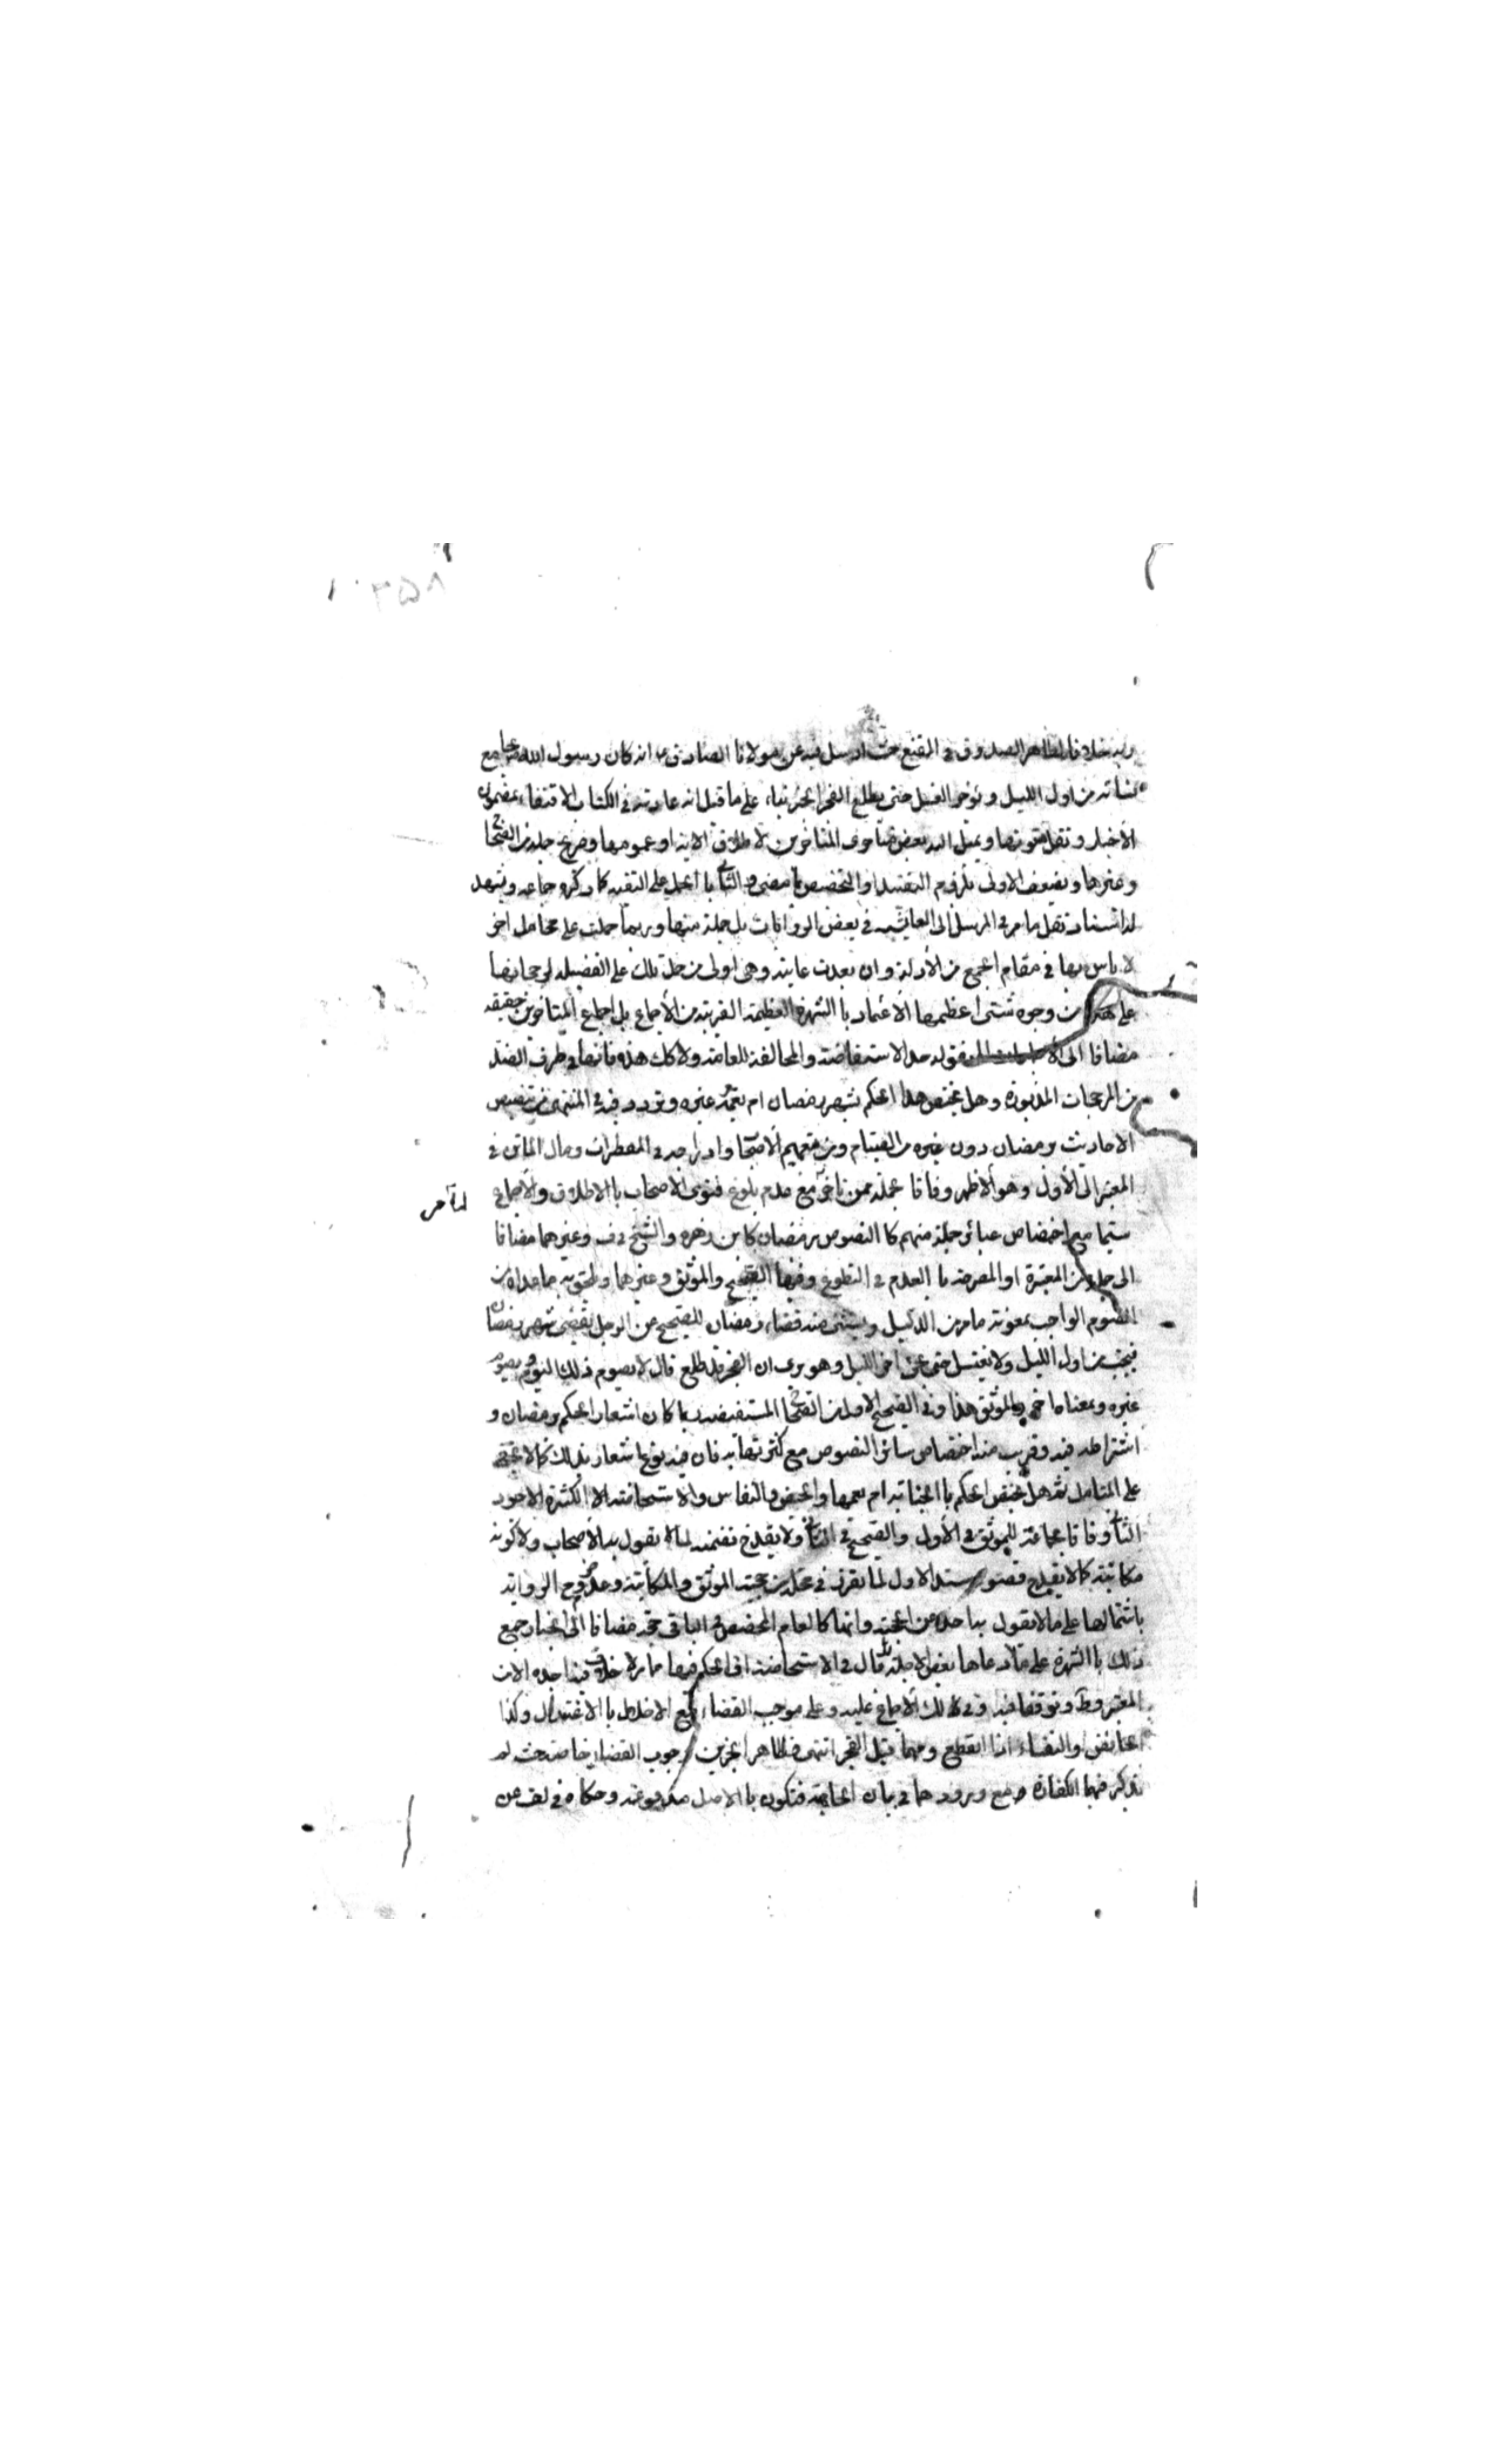 ٣٥٨
خلافا لظاهر الصدوق في المقنع حيث ارسل فيه عن مولانا الصادق ع انه كان رسول الله ص يجامع
نسائه من اول الليل ويؤخر الغسل حتى يطلع الفجر بناء على ما قيل انه عادته في الكتاب الافتاء بمضمون
الأخبار ونقل متونها ويميل اليه بعض متأخرى المتاخرين لاطلاق الاية او عمومها وصريح جملة من الصحاح
وغيرها ويضعف الاولى بلزوم التقييد او التخصيص بما مضى والثانى با الحمل على التقيه كما ذكره جماعه ويشهد
له اسناد نقل ما مر في المرسل الى العايشه في بعض الروايات بل جملة منها وربما حملت على محامل اخر
لا باس بها في مقام الجمع من الأدلة وان بعدت غايته وهى اولى من حمل تلك على الفضيله لرجحانها
على هذه من وجوه شتى اعظمها الأعتماد با الشهرة العظيمة القريبة من الأجماع بل اجماع المتاخرين حقيقه
مضافا الى حد الاستفاضة والمخالفة للعامة ولا كك هذه فانها في طرف الضد
من المرجحات المذبورة وهل يختص هذا الحكم بشهر رمضان ام يعمّه غيره وتردد فيه في المنتهى من تنصيص
الاحاديث برمضان دون غيره من الصيام ومن تعميم الأصحاب وادراجه في المفطرات ومال الماتن في
المعتبر الى الأول وهو الاظهر وفاقا لجملة ممن تاخر مع عدم بلوغ فتوى الاصحاب با الاطلاق والأجماع
لما مر
سيما مع اختصاص عبائر جملة منهم كا النصوص برمضان كابن زهره والشيخ في ف وغيرهما مضافا
الى جملة من المعتبرة المصرحة با العدم في التطوع وفيها الصحيح والموثق وغيرهما ويلحق به ما عداه من
الصوم الواجب بمعونة ما مر من الدليل ويستثنى منه قضاء رمضان للصحيح عن الرجل يقضى شهر رمضان
فيجنب من اول الليل ولا يغتسل حتى يجئ اخر الليل وهو يرى ان الفجر قد طلع قال لا يصوم ذلك اليوم ويصوم
غيره وبمعناه اخر والموثق هذا وفي الصحيح الاول من الصحاح المستفيضه ربما كان اشعار الحكم برمضان و
اشتراطه فيه وقريب منه اختصاص سائر النصوص مع كثرتها به فان فيه نوع اشعار بذلك كما لا يخفى
على المتامل ثم هل يختص الحكم با الجنابة ام يعمها والحيض والنفاس والاستحاضة الكثيرة الاجود
الثانى وفاقا لجماعة للموثق في الأول والصحيح في الثانى ولا يقدح تضمنه لما لا يقول به الأصحاب ولا كونه
مكاتبة كما لا يقدح قصور سند الاول لما تقرر في محله من حجية الموثق والمكاتبة وعدم خروج الرواية
باشتمالها على ما لا يقول به احد من الحجية وانها كالعام المخصص في الباقى حجة مضافا الى انجبار جميع
ذلك با الشهرة على ما ادعاها بعض الاجلة بل قال في الاستحاضة ان الحكم فيها مما لا خلاف فيه اجده الا من
المعتبر وط وتوقفا فيه وفى كا لك الأجماع عليه وعلى موجب القضاء مع الاخلال با الاغتسال وكذا
الحائض والنفساء اذا انقطع دمهما قبل الفجر انتهى فظاهر الخبرين وجوب القضاء خاصة حيث لم
يذكر فيها الكفارة مع ورودهما في بيان الحاجة فتكون با الاصل مدفوعة وحكاه في لف عن